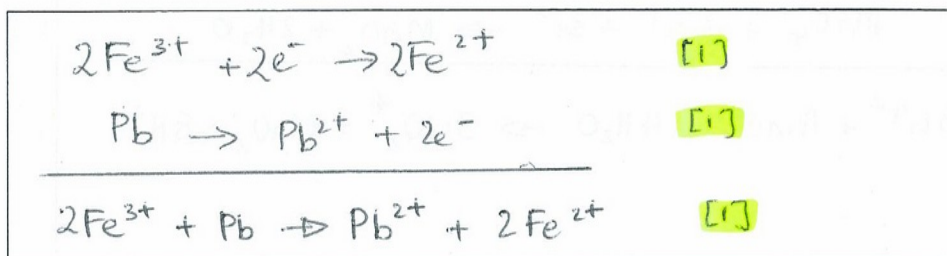 2Fe³⁺ + 2e⁻ → 2Fe²⁺ [1]
Pb → Pb²⁺ + 2e⁻ [1]
2Fe³⁺ + Pb → Pb²⁺ + 2Fe²⁺ [1]